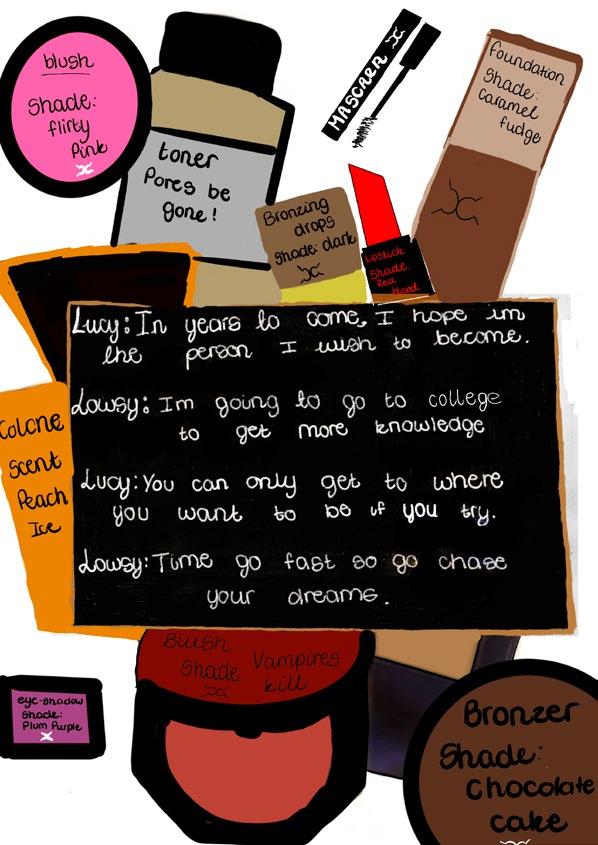 blush
Shade:
flirty
Pink
toner
Pores be
gone!
MASCREA
Foundation
Shade:
Caramel
fudge
Bronzing
drops
Shade: dark
Lipstick
Shade:
Red
blood
Lucy: In years to come, I hope im
the person I wish to become.
Lowsy: Im going to go to college
to get more knowledge
Lucy: You can only get to where
you want to be if you try.
Lowsy: Time go fast so go chase
your dreams.
Colone
Scent
Peach
Ice
Blush
Shade: Vampires
kill
eye-shadow
Shade:
Plum Purple
Bronzer
Shade:
Chocolate
cake